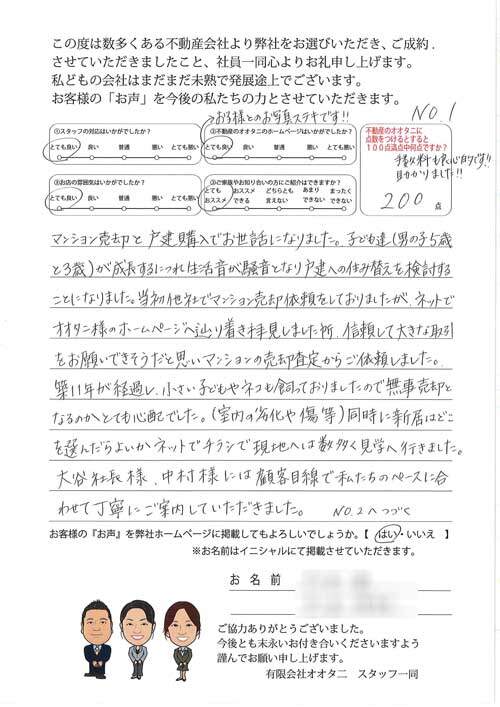 この度は数多くある不動産会社より弊社をお選びいただき、ご成約.
させていただきましたこと、社員一同心よりお礼申し上げます。
私どもの会社はまだまだ未熟で発展途上でございます。
お客様の「お声」を今後の私たちの力とさせていただきます。
NO.1
→お子様とのお写真ステキです!!
①スタッフの対応はいかがでしたか?
とても良い 良い 普通 悪い とても悪い
②不動産のオオタニのホームページはいかがでしたか?
とても良い 良い 普通 悪い とても悪い
③お店の雰囲気はいかがでしたか?
とても良い 良い 普通 悪い とても悪い
③ご家族やお知り合いの方にご紹介はできますか?
とても おススメ どちらとも あまり まったく
おススメ できる 言えない できない できない
不動産のオオタニに
点数をつけるとすると
100点満点中何点ですか?
料も良心的で!!
助かりました!!
200 点
マンション売却と戸建購入でお世話になりました。子ども達(男の子5歳
と3歳)が成長するにつれ生活音が騒音となり戸建への住み替えを検討する
ことになりました。当初他社でマンション売却依頼をしておりましたが、ネットで
オオタニ様のホームページへ辿り着き拝見しました所、信頼して大きな取引
をお願いできそうだと思いマンションの売却査定からご依頼しました。
築11年が経過し、小さい子どもやネコも飼っておりましたので無事売却と
なるのかとても心配でした。(室内の劣化や傷等)同時に新居はどこ
を選んだらよいかネットでチラシで現地へは数多く見学へ行きました。
大谷社長様、中村様には顧客目線で私たちのペースに合
わせて丁寧にご案内していただきました。 NO.2へつづく
お客様の『お声』を弊社ホームページに掲載してもよろしいでしょうか。【 はい・いいえ 】
※お名前はイニシャルにて掲載させていただきます。
お 名 前
ご協力ありがとうございました。
今後とも末永いお付き合いくださいますよう
謹んでお願い申し上げます。
有限会社オオタニ スタッフ一同